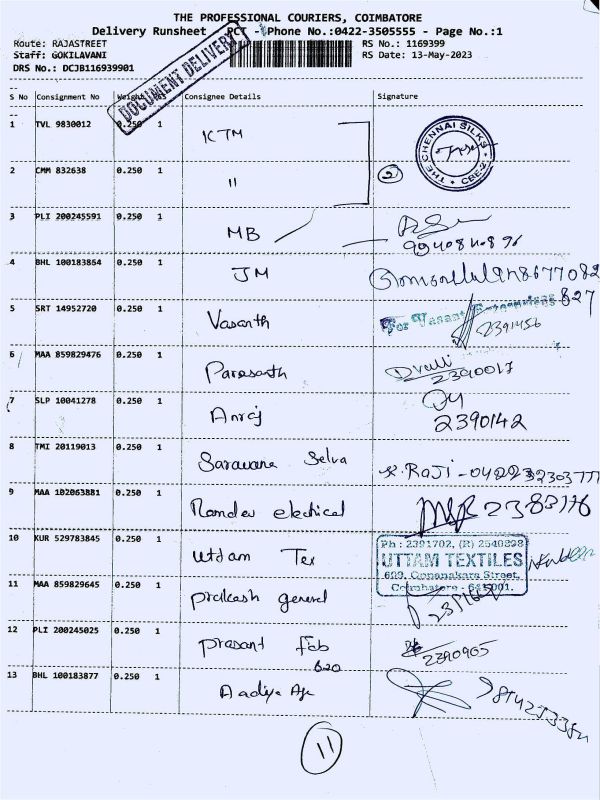 THE PROFESSIONAL COURIERS, COIMBATORE
Delivery Runsheet - PCT - Phone No.:0422-3505555 - Page No.:1
Route: RAJASTREET
RS No.: 1169399
Staff: GOKILAVANI
RS Date: 13-May-2023
DRS No.: DCJB116939901
DOCUMENT DELIVERY
S No Consignment No Weight Pcs Consignee Details Signature
1 TVL 9830012 0.250 1 KTM
THE CHENNAI SILKS CBE-2
2 CMM 832638 0.250 1 11 2
3 PLI 200245591 0.250 1 MB
4 BHL 100183864 0.250 1 JM
5 SRT 14952720 0.250 1 Vasanth For Vasant
2391456
6 MAA 859829476 0.250 1 Parasanth Dvalli
2390017
7 SLP 10041278 0.250 1 Anraj
2390142
8 TMI 20119013 0.250 1 Sarawana Selva K. Raji -
9 MAA 102063881 0.250 1 Ramdev electrical
10 KUR 529783845 0.250 1 Uttam Tex
Ph : 2391702, (R) 2540898
UTTAM TEXTILES
Street,
Coimbatore - 641001.
11 MAA 859829645 0.250 1 prakash general
12 PLI 200245025 0.250 1 prasant fab
2390905
620
13 BHL 100183877 0.250 1 Aadiya
11